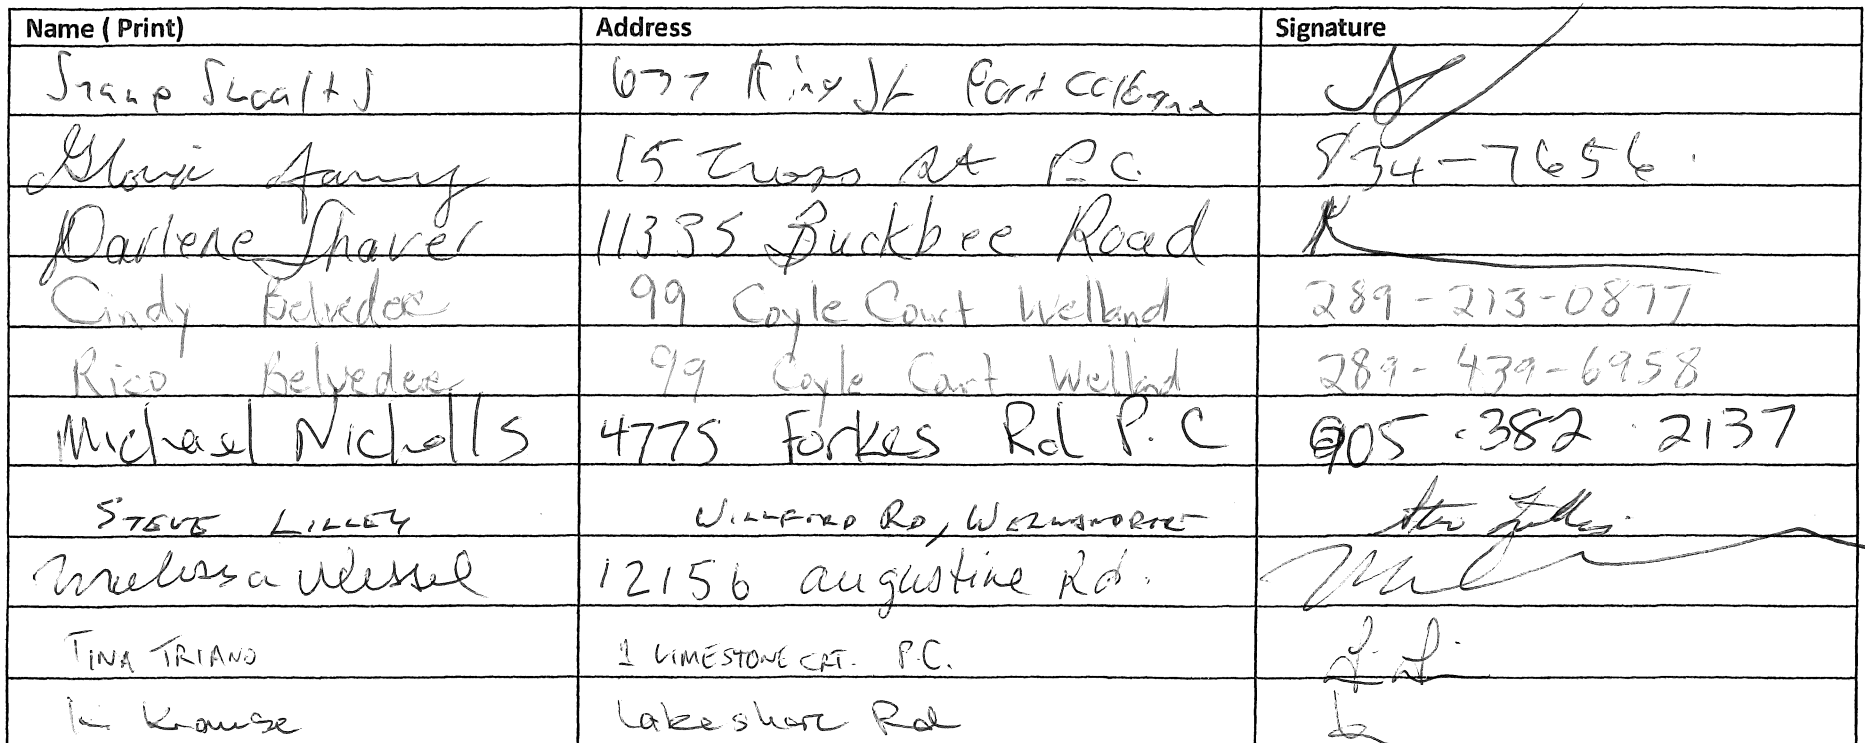 Name ( Print) Address Signature
Shoalts 637 King St Port Colborne
Gloria 15 Cross St P.C. 834-7656
Darlene Shaver 11335 Buckbee Road
Cindy Belvedere 99 Coyle Court Welland 289-213-0877
Rico Belvedere 99 Coyle Court Welland 289-439-6958
Michael Nicholls 4775 Forkes Rd P.C 905.382.2137
STEVE LILLEY WILLFORD RD, Steve Lilley
Melissa Wessel 12156 augustine Rd.
TINA TRIANO 1 LIMESTONE CRT. P.C.
K Krause Lakeshore Rd